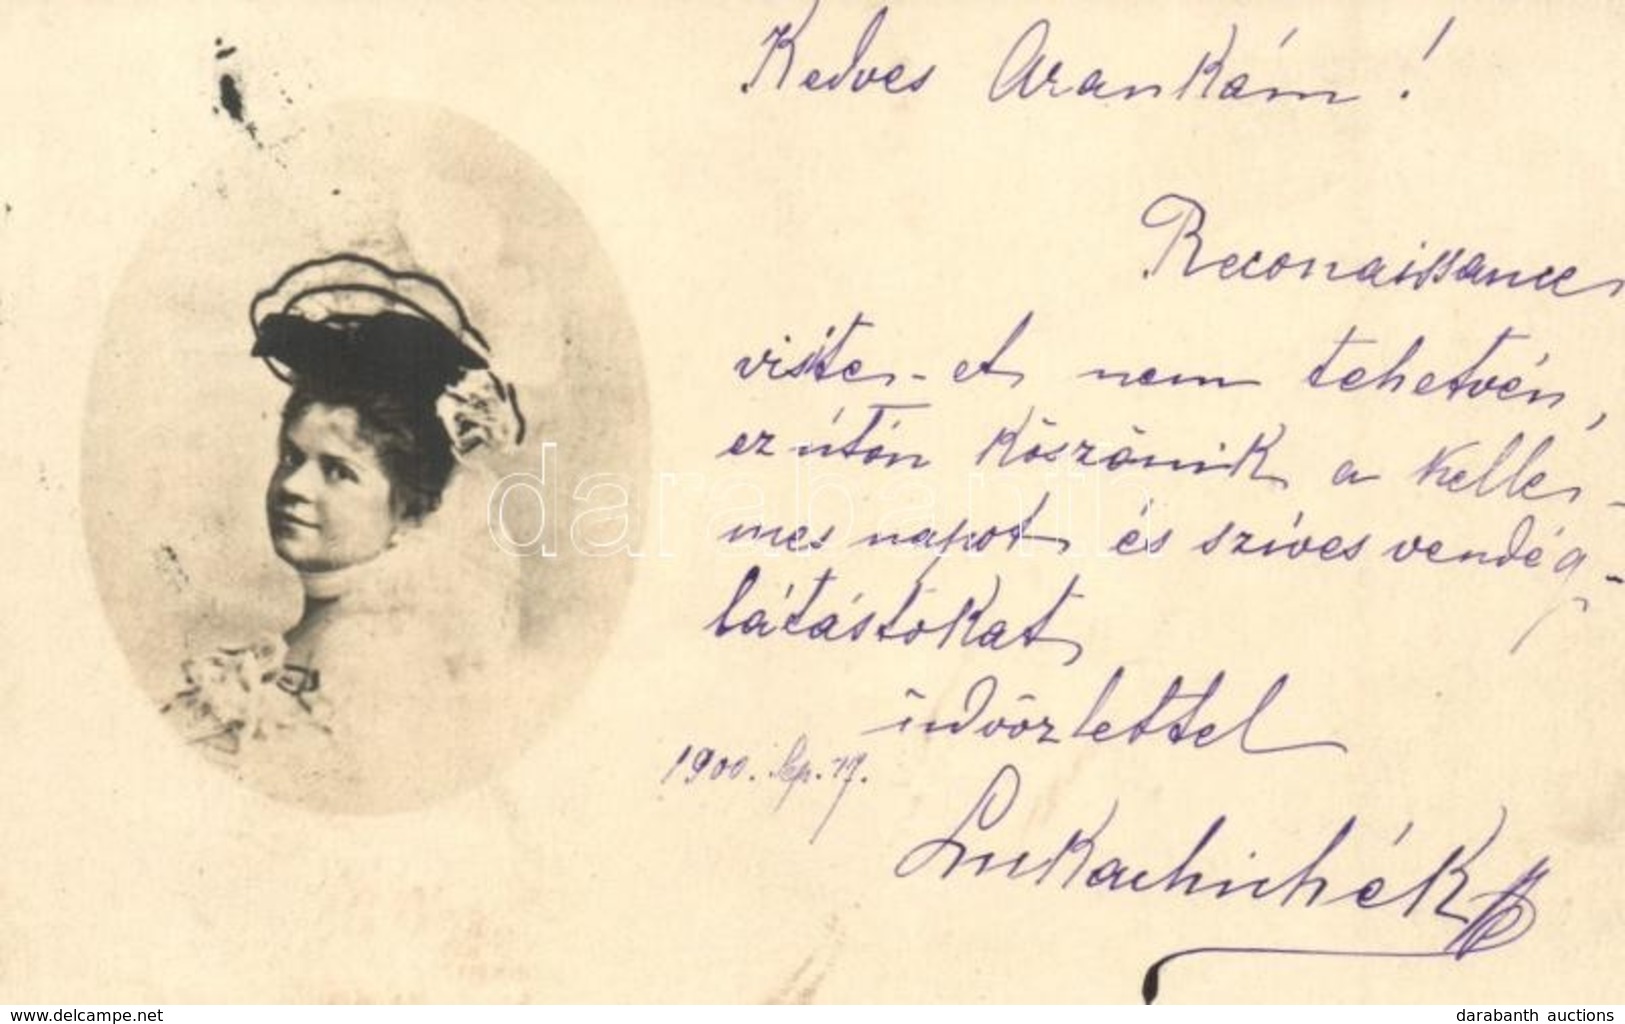 Kedves Arankám!
Reconaissance
visite-et nem tehetvén,
ez úton köszönik a kelle-
mes napot és szíves vendég-
látástokat
üdvözlettel
1900. Sep. 17.
Lukachichék
darabanth
www.delcampe.net
darabanth auctions